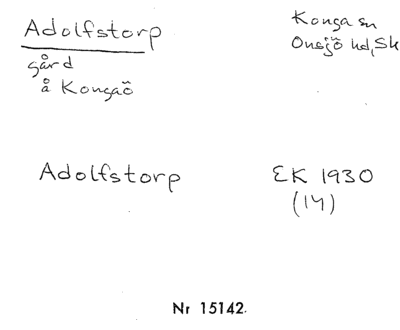 Adolfstorp
Konga sn
Onsjö hd, Sk
gård
å Kongaö
Adolfstorp
EK 1930
(14)
Nr 15142.